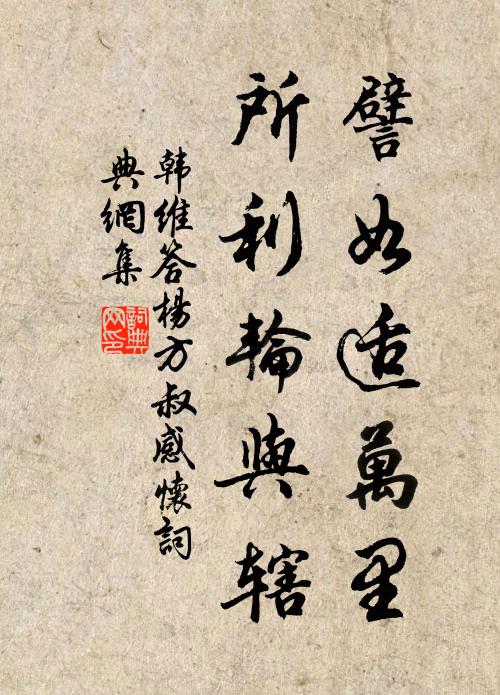 譬如适萬里
所利輪與辖
韩維答楊方叔感懷詞
典網集
詞典网印